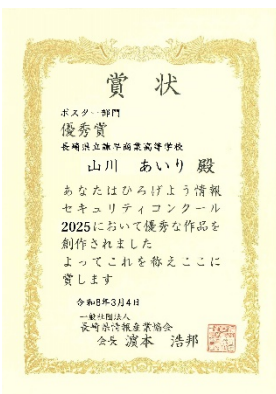 賞状
ポスター部門
優秀賞
長崎県立諫早商業高等学校
山川 あいり 殿
あなたはひろげよう情報
セキュリティコンクール
2025において優秀な作品を
創作されました
よってこれを称えここに
賞します
令和8年3月4日
一般社団法人
長崎県情報産業協会
会長 濵本 浩邦